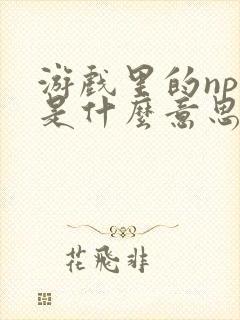 游戲里的np
是什麼意思
花飛非